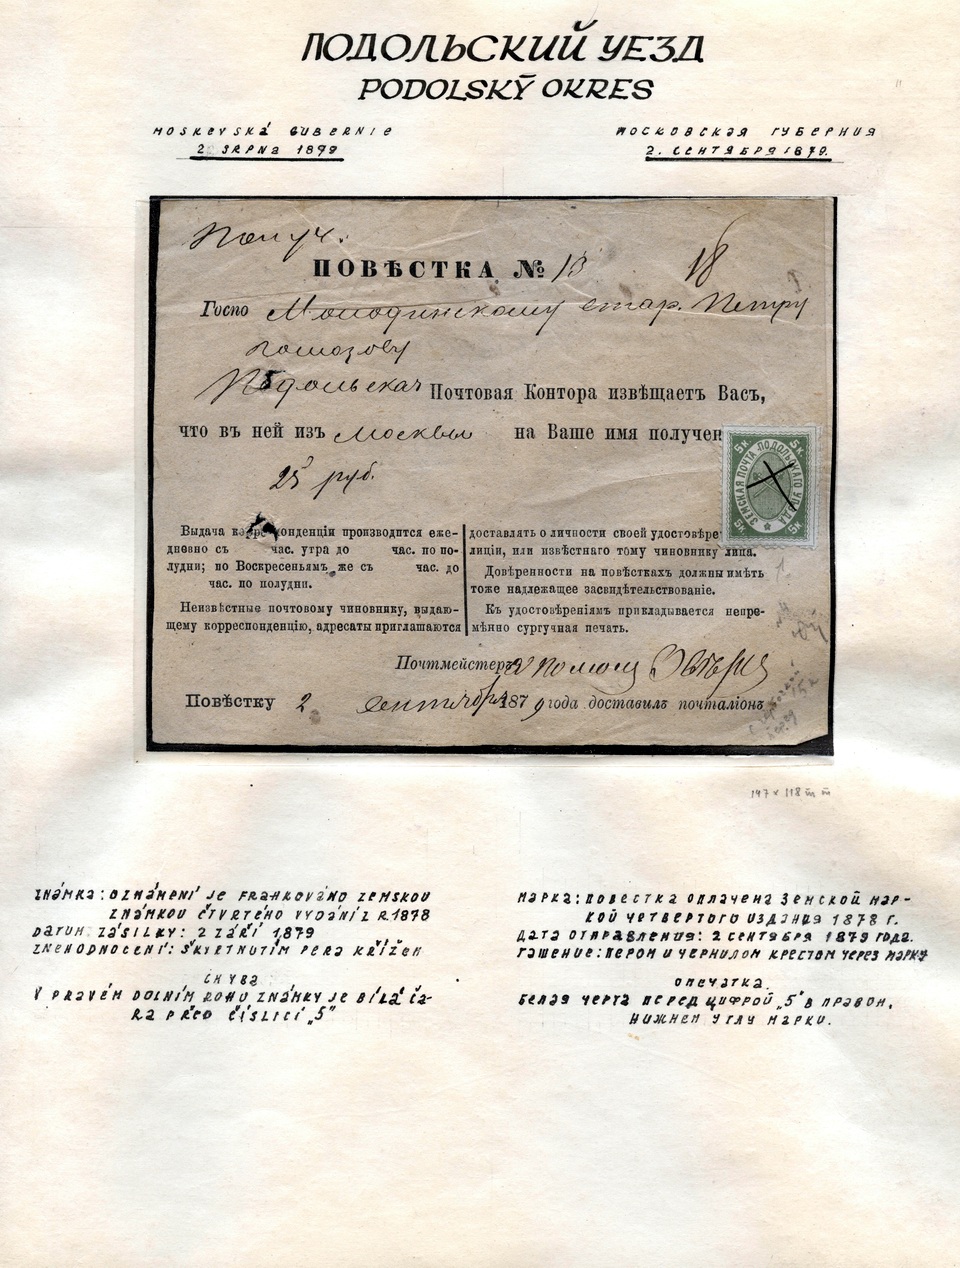 ПОДОЛЬСКИЙ УЕЗД
PODOLSKÝ OKRES
MOSKEVSKÁ GUBERNIE
2 SRPNA 1879
МОСКОВСКАЯ ГУБЕРНИЯ
2. СЕНТЯБРЯ 1879.
Получ.
ПОВѢСТКА № 13 18
Госпо Молодинскому стар. Петру
Подольская Почтовая Контора извѣщаетъ Васъ,
что въ ней изъ Москвы на Ваше имя получен
25 руб.
5к. 5к.
ЗЕМСКАЯ ПОЧТА ПОДОЛЬСКАГО УѢЗДА
5к. 5к.
Выдача корреспонденціи производится еже-
дневно съ час. утра до час. по по-
лудни; по Воскресеньямъ же съ час. до
час. по полудни.
Неизвѣстные почтовому чиновнику, выдаю-
щему корреспонденцію, адресаты приглашаются
доставлять о личности своей удостовѣре
лиціи, или извѣстнаго тому чиновнику лица.
Довѣренности на повѣсткахъ должны имѣть
тоже надлежащее засвидѣтельствованіе.
Къ удостовѣреніямъ прикладывается непре-
мѣнно сургучная печать.
Почтмейстеръ
Повѣстку 2 сентября 1879 года доставилъ почталіонъ
147 x 118 m m
ZNÁMKA: OZNÁMENÍ JE FRANKOVÁNO ZEMSKOU
ZNÁMKOU ČTVRTÉHO VYDÁNÍ Z R.1878
DATUM ZÁSILKY: 2 ZÁŘÍ 1879
ZNEHODNOCENÍ: ŠKRTNUTÍM PERA KŘÍŽEM
CHYBA
V PRAVÉM DOLNÍM ROHU ZNÁMKY JE BÍLÁ ČÁ-
RA PŘED ČÍSLICÍ „5"
МАРКА: ПОВЕСТКА ОПЛАЧЕНА ЗЕМСКОЙ МАР-
КОЙ ЧЕТВЕРТОГО ИЗДАНИЯ 1878 Г.
ДАТА ОТПРАВЛЕНИЯ: 2 СЕНТЯБРЯ 1879 ГОДА.
ГАШЕНИЕ: ПЕРОМ И ЧЕРНИЛОМ КРЕСТОМ ЧЕРЕЗ МАРКУ
ОПЕЧАТКА.
БЕЛАЯ ЧЕРТА ПЕРЕД ЦИФРОЙ „5" В ПРАВОМ,
НИЖНЕМ УГЛУ МАРКИ.